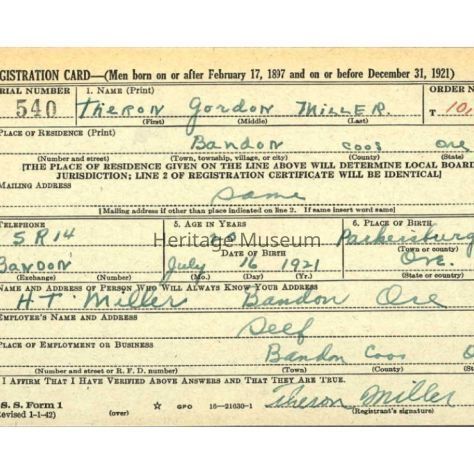 GISTRATION CARD—(Men born on or after February 17, 1897 and on or before December 31, 1921)
ERIAL NUMBER 1. NAME (Print) ORDER N
540 THERON Gordon MILLER. T 10,
(First) (Middle) (Last)
PLACE OF RESIDENCE (Print)
Bandon Coos Ore
(Number and street) (Town, township, village, or city) (County) (State)
[THE PLACE OF RESIDENCE GIVEN ON THE LINE ABOVE WILL DETERMINE LOCAL BOARD
JURISDICTION; LINE 2 OF REGISTRATION CERTIFICATE WILL BE IDENTICAL]
MAILING ADDRESS
Same
[Mailing address if other than place indicated on line 2. If same insert word same]
TELEPHONE 5. AGE IN YEARS 6. PLACE OF BIRTH
5 R 14 Parkersburg
Heritage Museum
DATE OF BIRTH (Town or county)
BANDON July 16 1921 Ore.
(Exchange) (Number) (Mo.) (Day) (Yr.) (State or country)
NAME AND ADDRESS OF PERSON WHO WILL ALWAYS KNOW YOUR ADDRESS
H.T. Miller Bandon Ore
EMPLOYER'S NAME AND ADDRESS
Self
PLACE OF EMPLOYMENT OR BUSINESS
Bandon Coos O
(Number and street or R. F. D. number) (Town) (County) (St
I AFFIRM THAT I HAVE VERIFIED ABOVE ANSWERS AND THAT THEY ARE TRUE.
S. S. Form 1
evised 1-1-42) (over) ☆ GPO 16—21630-1 Theron Miller
(Registrant's signature)